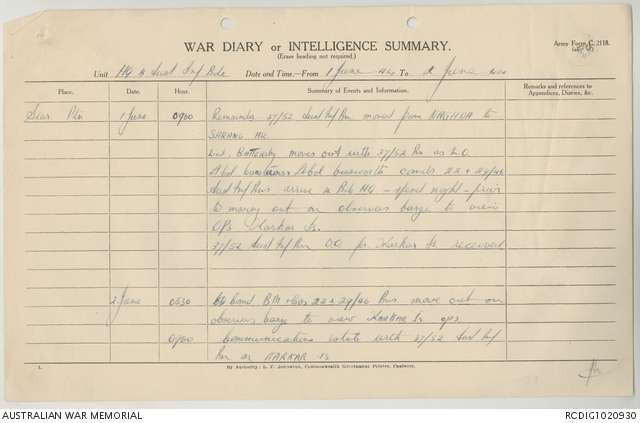 Army Form C. 2118.
WAR DIARY or INTELLIGENCE SUMMARY.
(Erase heading not required.)
Unit HQ 4 Aust Inf Bde Date and Time.—From 1 June 44 To 2 June
Place. Date. Hour. Summary of Events and Information. Remarks and references to Appendices, Diaries, &c.
1 June 0700 Remainder 37/52 Aust Inf Bn moved from NARIINA to
SARANG
Lieut. Battersby moves out with 37/52 Bn as L.O.
comds 22 & 29/46
Aust Inf Bns arrive at Bde HQ – spend night – prior
to moving out on observers barge to view
OPs Karkar Is.
37/52 Aust Inf Bn O.O. for Karkar Is. received
2 June 0530 Bde Comd, BM & COs 22 & 29/46 Bns move out on
observers barge to view KARKAR Is ops.
0700 Communications estab with 37/52 Aust Inf
Bn on KARKAR Is
1.
By Authority: L. F. Johnston, Commonwealth Government Printer, Canberra.
AUSTRALIAN WAR MEMORIAL
RCDIG1020930